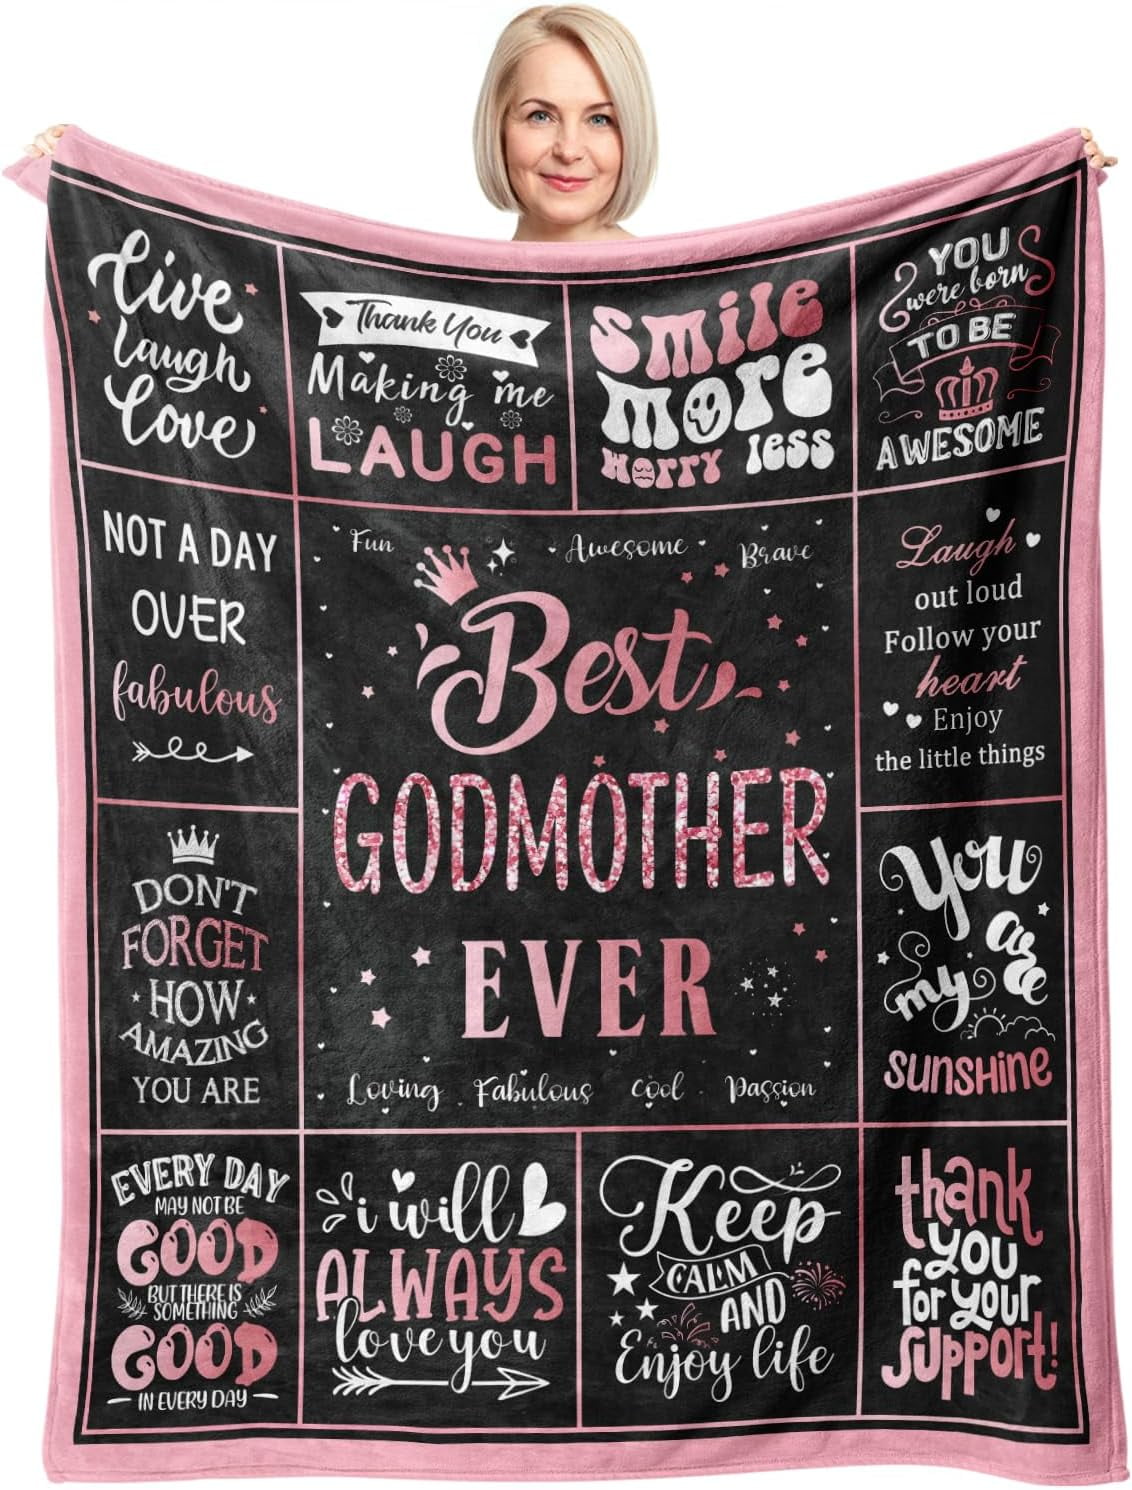 Live
laugh
love
Thank You
Making me
LAUGH
Smile
More
Worry less
YOU
were born
TO BE
AWESOME
NOT A DAY
OVER
fabulous
Fun Awesome Brave
Best
GODMOTHER
EVER
Loving Fabulous Cool Passion
Laugh
out loud
Follow your
heart
Enjoy
the little things
DON'T
FORGET
HOW
AMAZING
YOU ARE
You
are
my
sunshine
EVERY DAY
MAY NOT BE
GOOD
BUT THERE IS
SOMETHING
GOOD
IN EVERY DAY
i will
ALWAYS
love you
Keep
CALM
AND
Enjoy life
thank
you
for your
support!